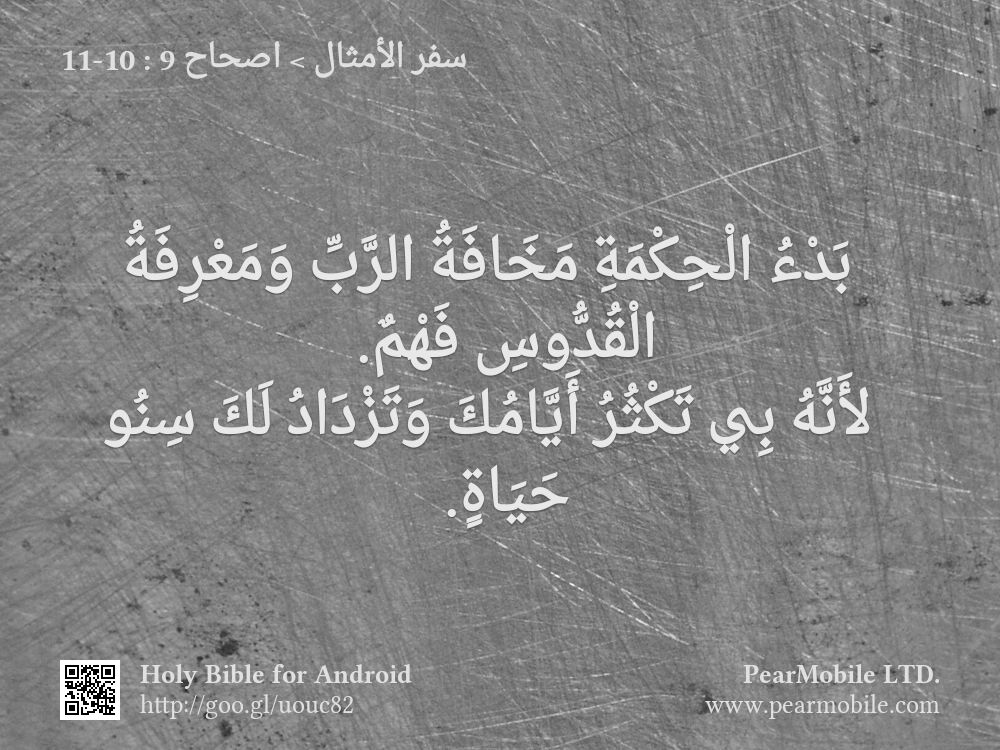 سفر الأمثال > اصحاح 9 : 10-11
بَدْءُ الْحِكْمَةِ مَخَافَةُ الرَّبِّ وَمَعْرِفَةُ
الْقُدُّوسِ فَهْمٌ.
لأَنَّهُ بِي تَكْثُرُ أَيَّامُكَ وَتَزْدَادُ لَكَ سِنُو
حَيَاةٍ.
Holy Bible for Android
http://goo.gl/uouc82
PearMobile LTD.
www.pearmobile.com